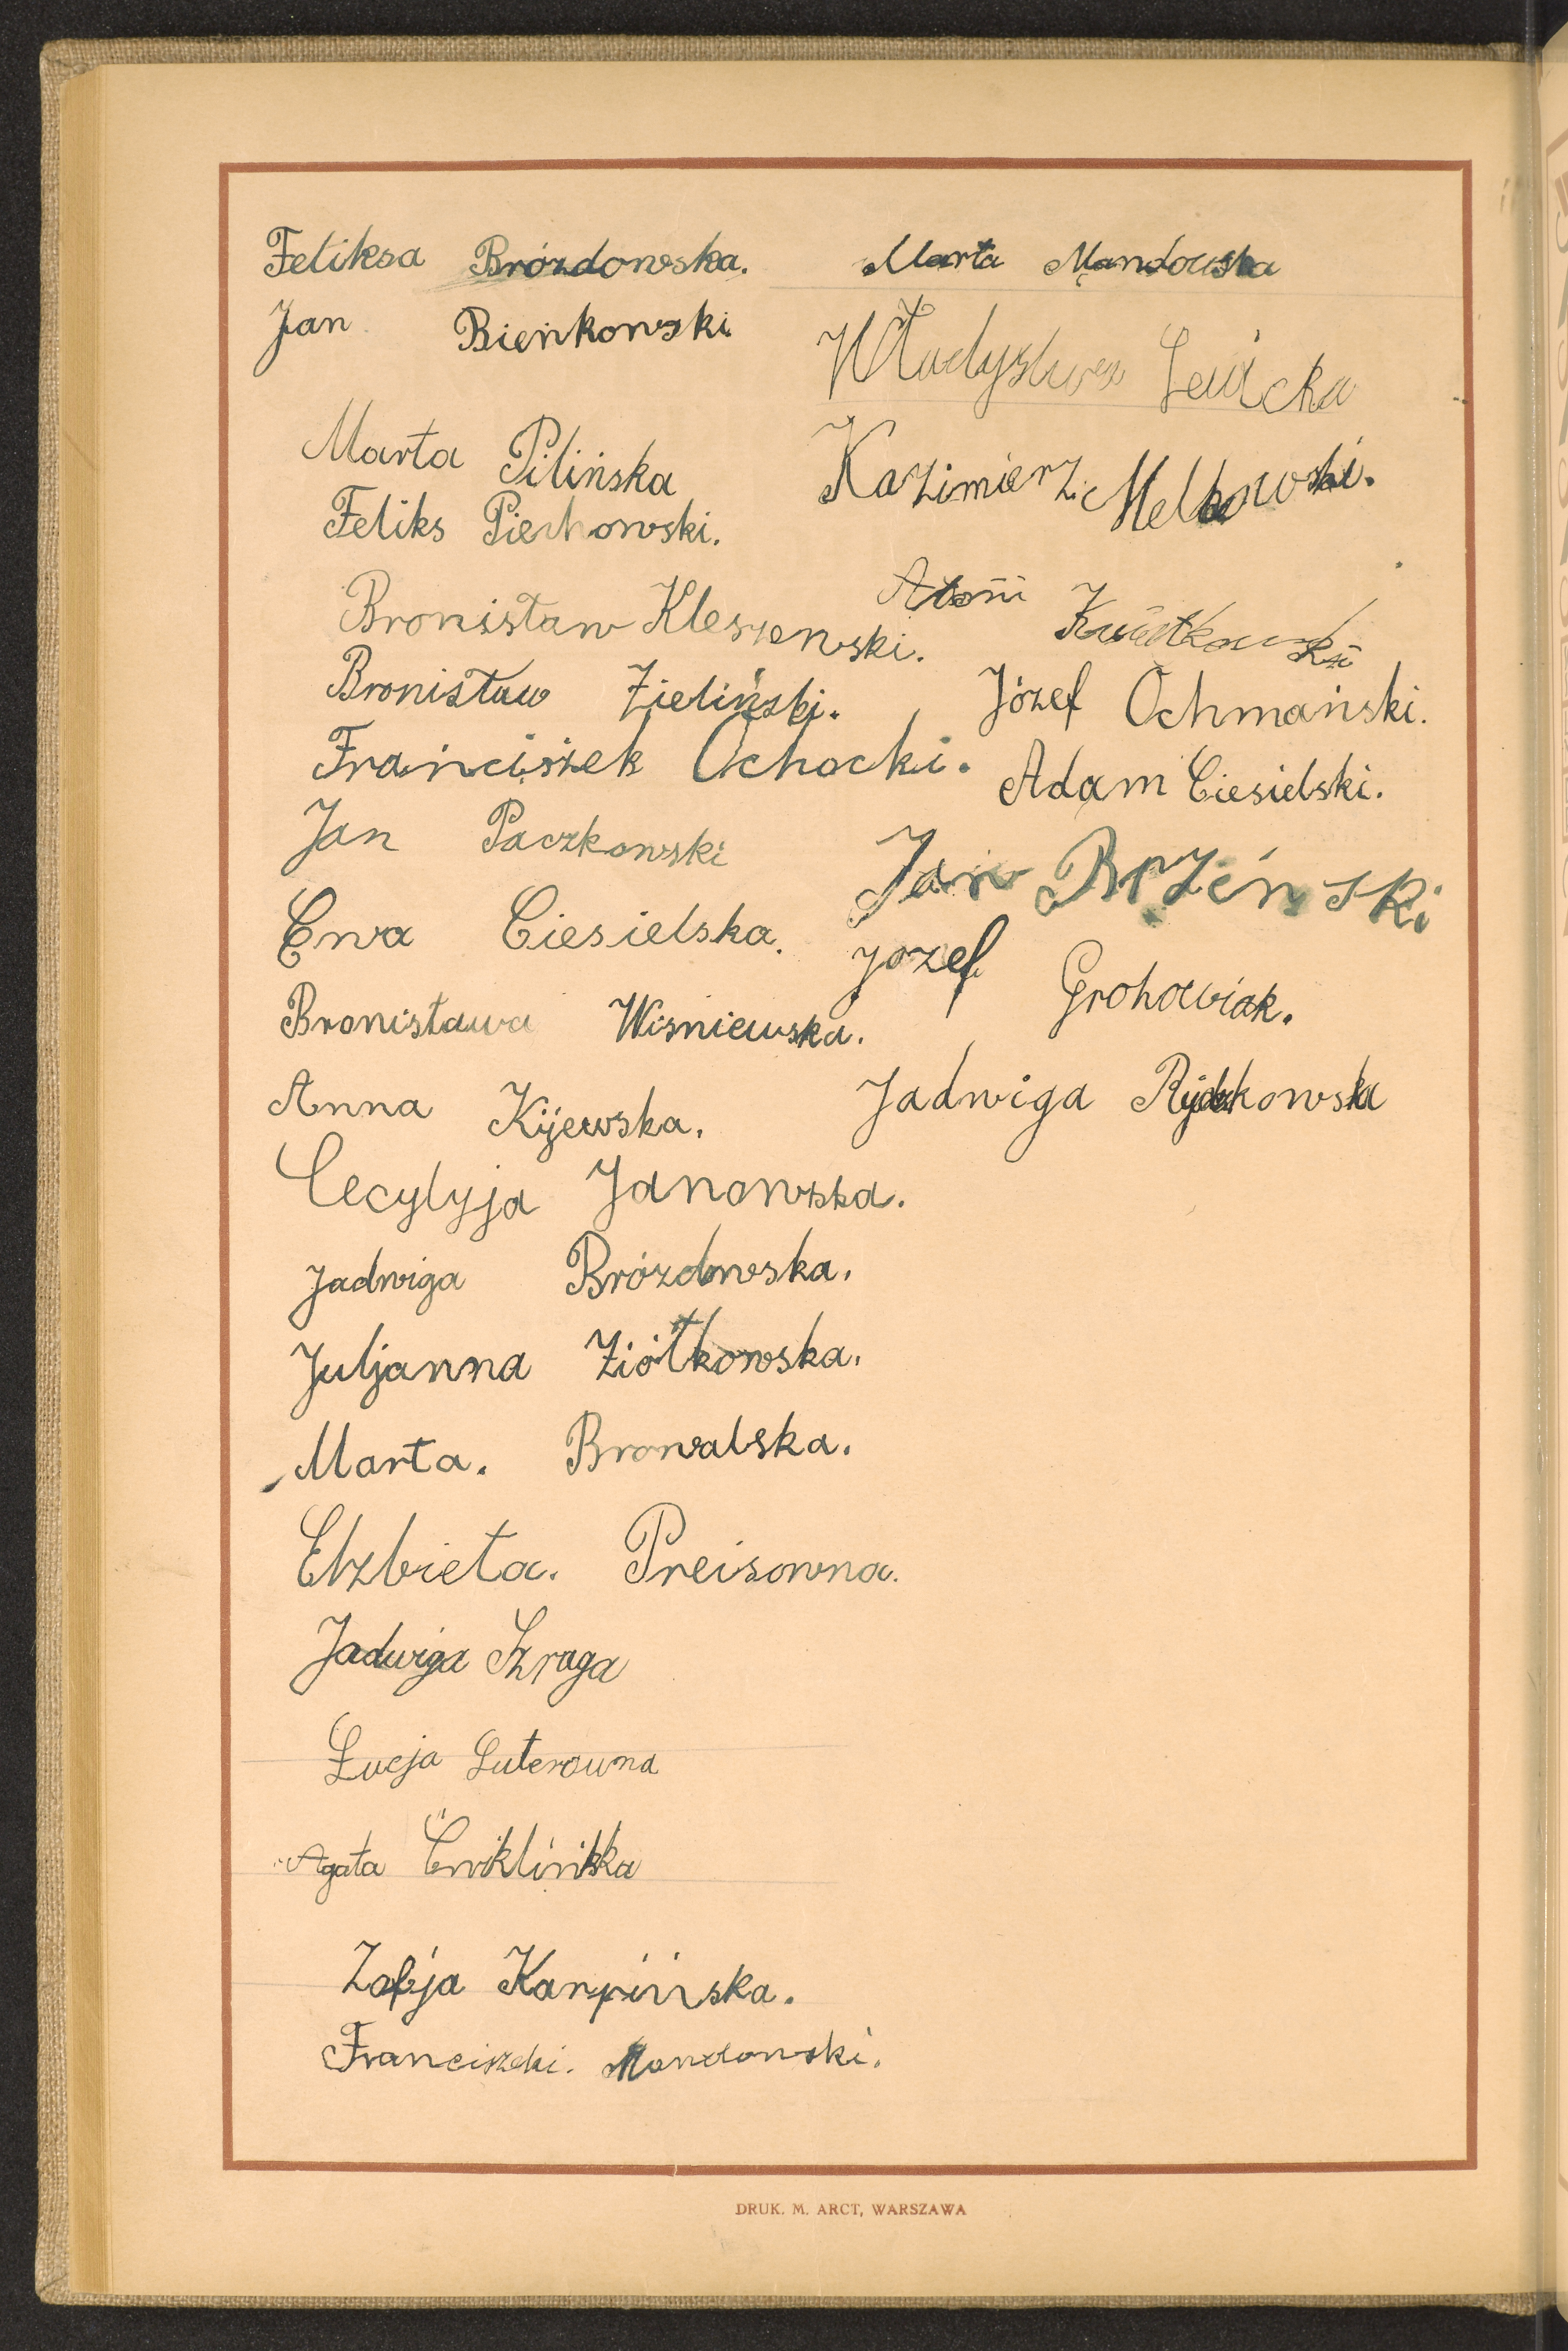 Feliksa Brózdowska.
Jan Bieńkowski
Marta Pilińska
Feliks Piechowski.
Bronisław Kleszewski.
Bronisław Zieliński.
Franciszek Ochocki.
Jan Paczkowski
Ewa Ciesielska.
Bronisława Wiśniewska.
Anna Kijewska.
Cecylyja Janowska.
Jadwiga Brózdowska.
Juljanna Ziółkowska.
Marta. Browalska.
Elzbieta. Preisowna.
Jadwiga Szraga
Łucja Luterowna
Agata Ćwiklińska
Zofja Karpińska.
Franciszki. Mondowski.
Marta Mandowska
Władysława
Kazimierz Melkowski.
Kwiatkowski
Józef Ochmański.
Adam Ciesielski.
Jan Brzeński
Józef Grohowiak.
Jadwiga
DRUK. M. ARCT, WARSZAWA